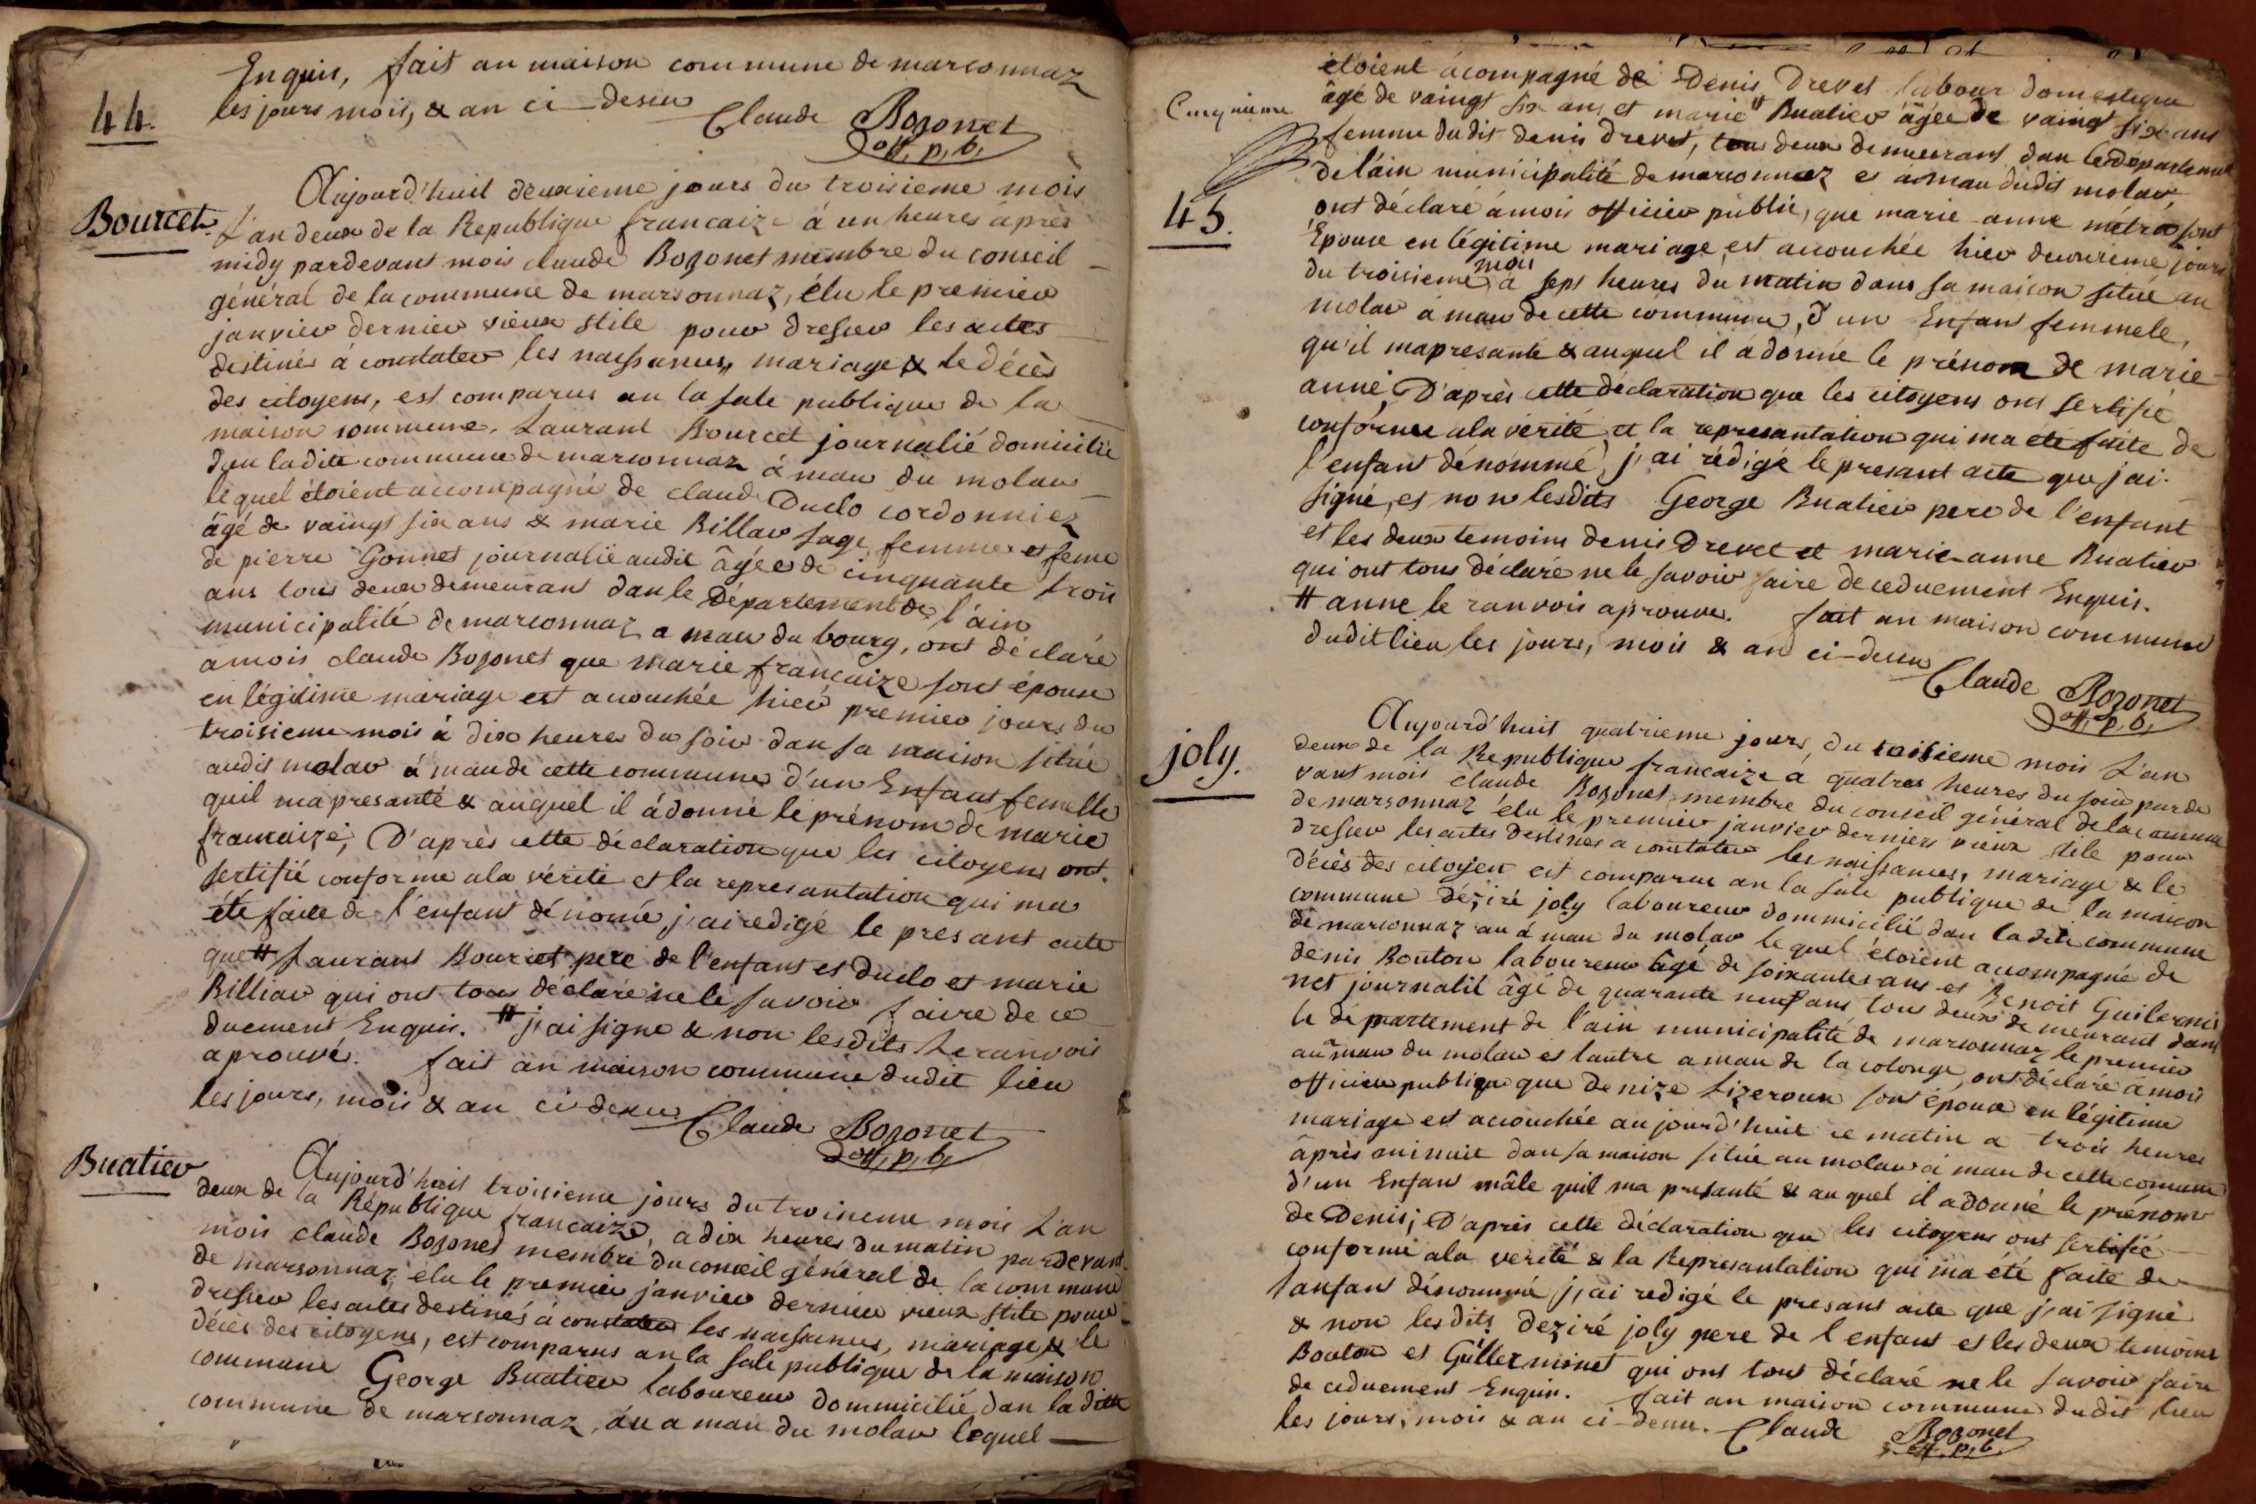 44.
Enquis, fait an maison commune de marsonnaz
les jours mois, & an ci-desu
Claude Bozonet
off. p, b,
Bourcet.
Aujourd'huit deuxieme jours du troisieme mois
L'an deux de la Republique francaize à un heures àprès
midy pardevant mois claude Bozonet membre du conseil
général de la commune de marsonnaz, élu le premier
janvier dernier vieux stile pour dresser les actes
destinés à constater les naissances, mariage & le décès
des citoyens, est comparus an la sale publique de la
maison commune, Laurant Bourcet journalié domicilié
dan ladite commune de marsonnaz à mau du molar
lequel étoient accompagné de claude Duclo cordonniez
âgé de vaingt six ans & marie Billar sage femme et feme
de pierre Gonnet journalié audit âgée de cinquante trois
ans tous deux demeurant dan le Département de l'ain
municipalité de marsonnaz a mau du bourg, ont déclaré
a mois claude Bozonet que marie francaize sont épouse
en légitime mariage est acouchée hier premier jours du
troisieme mois à dix heures du soir dan sa maison situé
audit molar à mau de cette commune d'un Enfant femelle
quil ma presanté & auquel il à donné le prénom de marie
francaize, D'après cette déclaration que les citoyens ont
sertifié conforme a la vérité et la represantation qui ma
été faite de l'enfant dénomé j'ai redigé le presant acte
que # Laurant Bourcet pere de l'enfant et duclo et marie
Billiar qui ont tous déclaré ne le savoir faire de ce
duement Enquis. # j'ai signé & non lesdits Le ranvois
aprouvé. fait an maison commune dudit lieu
les jours, mois & an ci desu
Claude Bozonet
off, p, b,
Buatier
Aujourd'huit troisieme jours du troisieme mois L'an
deux de la République francaize, a dix heures du matin pardevant
mois claude Bozonet membre du conseil général de la commune
de marsonnaz, élu le premier janvier dernier vieux stile pour
dresser les actes destinés à constater les naissances, mariage & le
décès des citoyens, est comparus an la sale publique de la maison
commune George Buatier laboureur dommicilié dan la ditte
commune de marsonnaz, au a mau du molar lequel
étoient àcompagné de Denis Drevet labour domestique
Cinquieme
âgé de vaingt six ans et marie # Buatier âgée de vaingt six ans
femme dudit denis drevet, tous deux demeurant dan le département
de l'ain municipalité de marsonnaz et a mau dudit molar,
45.
ont déclaré à mois officier public, que marie-anne métra sont
Epouse en légitime mariage est acouchée hier deuxieme jours
du troisieme mois à sept heures du matin dans sa maison situé au
molar à mau de cette commune, d'un Enfant femmele,
qu'il ma presanté & auquel il à donné le prénom de marie
anne. D'après cette déclaration que les citoyens ont sertifié
conforme a la vérité et la represantation qui ma été faite de
l'enfant dénommé j'ai rédigé le presant acte que j'ai
signé, et non lesdits George Buatier pere de l'enfant
et les deux temoins denis Drevet et marie-anne Buatier
qui ont tous déclaré ne le savoir faire de ceduement Enquis.
# anne le ranvois aprouve. fait an maison commune
dudit lieu les jours, mois & an ci-desu
Claude Bozonet
off, p, b,
joly.
Aujourd'huit quatrieme jours, du troisieme mois L'an
deux de la Republique francaize à quatres heures du soir parde
vant mois claude Bozonet membre du conseil général de la comune
de marsonnaz élu le premier janvier derniers vieux stile pour
dresser les actes destinés a constater les naissances, mariage & le
décès des citoyen est comparus an la sale publique de la maison
commune Déziré joly laboureur dommicilié dan ladite commune
de marsonnaz au à mau du molar lequel étoient acompagné de
denis Bouton laboureur âgé de soixantes ans et Benoit Guilermi
net journalié âgé de quarante neuf ans tous deux demeurant dans
le département de l'ain municipalité de marsonnaz le premier
au mau du molar et l'autre a mau de la colonge, ont déclaré a mois
officier publique que denize Lizeroux sont épouse en légitime
mariage est acouchée aujourd'huit ce matin a trois heures
âprès minuit dan sa maison située au molar à mau de cette comune
d'un Enfant mâle quil ma presanté & au quel il a donné le prénom
de Denis; D'après cette déclaration que les citoyens ont sertifié
conforme a la verité & la Represantation qui ma été faite de
l'anfant dénommé j'ai redigé le presant acte que j'ai signé
& non lesdits deziré joly pere de l'enfant et les deux temoins
Bouton et Guillerminet qui ont tout déclaré ne le savoir faire
de ceduement Enquis. fait an maison commune dudit lieu
les jours, mois & an ci-desu. Claude Bozonet
off. p, b,